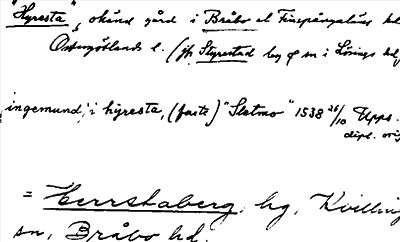 "Hyresta", okänd gård i Bråbo el Finspångaläns hd
Östergötlands l. (jfr Styrestad by o sn i Lösings hd,
ingemund i hyresta, (faste) "Sletmo" 1538 26/10 Upps.
dipl. orig
= Herrstaberg, hg, Kvilling
sn, Bråbo hd.